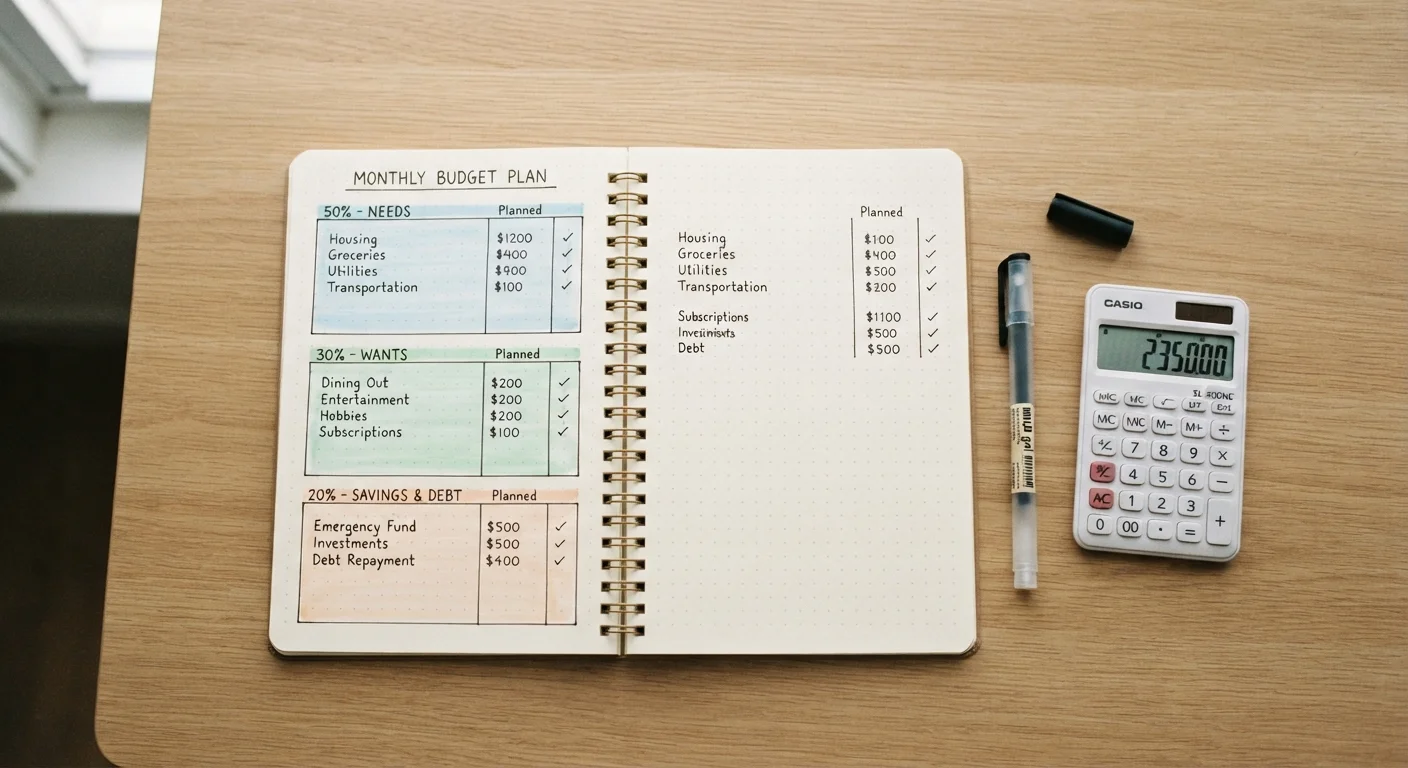 MONTHLY BUDGET PLAN
50% - NEEDS Planned
Housing $1200 ✓
Groceries $400 ✓
Utilities ✓
Transportation $100 ✓
30% - WANTS Planned
Dining Out $200 ✓
Entertainment $200 ✓
Hobbies $200 ✓
Subscriptions $100 ✓
20% - SAVINGS & DEBT Planned
Emergency Fund $500 ✓
Investments $500 ✓
Debt Repayment $400 ✓
Planned
Housing $100 ✓
Groceries $400 ✓
Utilities $500 ✓
Transportation $200 ✓
Subscriptions $1100 ✓
$500 ✓
Debt $500 ✓
CASIO
235000
MC M- M+ ÷
7 8 9 ×
4 5 6 −
AC 1 2 3 +
0 00 · =